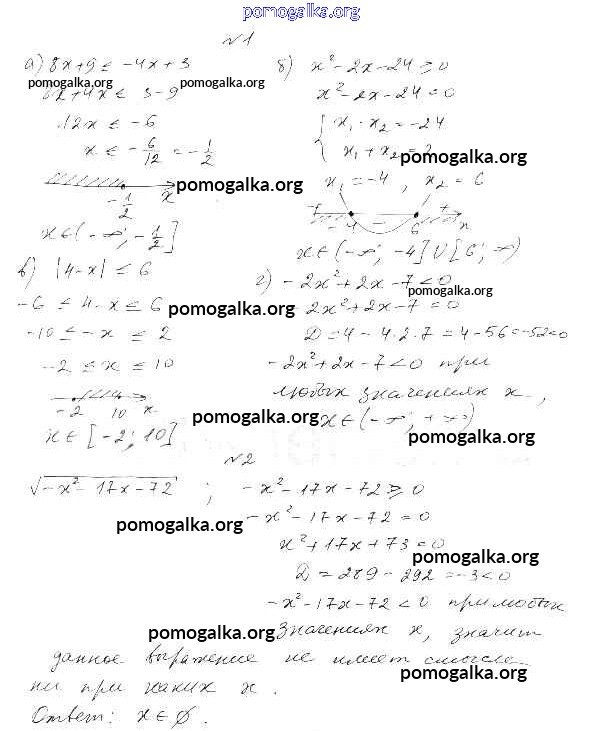 pomogalka.org
№1
а) 8x+9 ≤ -4x+3
pomogalka.org
8x+4x ≤ 3-9
12x ≤ -6
x ≤ -6/12 = -1/2
-1/2 x
pomogalka.org
x∈(-∞; -1/2]
б) x²-2x-24 ≥ 0
pomogalka.org
x²-2x-24=0
{ x₁·x₂=-24
x₁+x₂=2
pomogalka.org
x₁=-4, x₂=6
+ -4 - 6 + x
x∈(-∞; -4]∪[6; ∞)
в) |4-x| ≤ 6
-6 ≤ 4-x ≤ 6
pomogalka.org
-10 ≤ -x ≤ 2
-2 ≤ x ≤ 10
-2 10 x
x∈[-2; 10]
г) -2x²+2x-7<0
pomogalka.org
2x²+2x-7=0
D=4-4·2·7=4-56=-52<0
-2x²+2x-7<0 при
любых значениях x.,
pomogalka.org
x∈(-∞; +∞)
pomogalka.org
№2
√-x²-17x-72 ; -x²-17x-72 ≥ 0
pomogalka.org
-x²-17x-72=0
x²+17x+73=0
pomogalka.org
D=289-292=-3<0
-x²-17x-72<0 при любых
pomogalka.org
значениях x, значит
данное выражение не имеет смысла
pomogalka.org
ни при каких x.
Ответ: x∈∅.